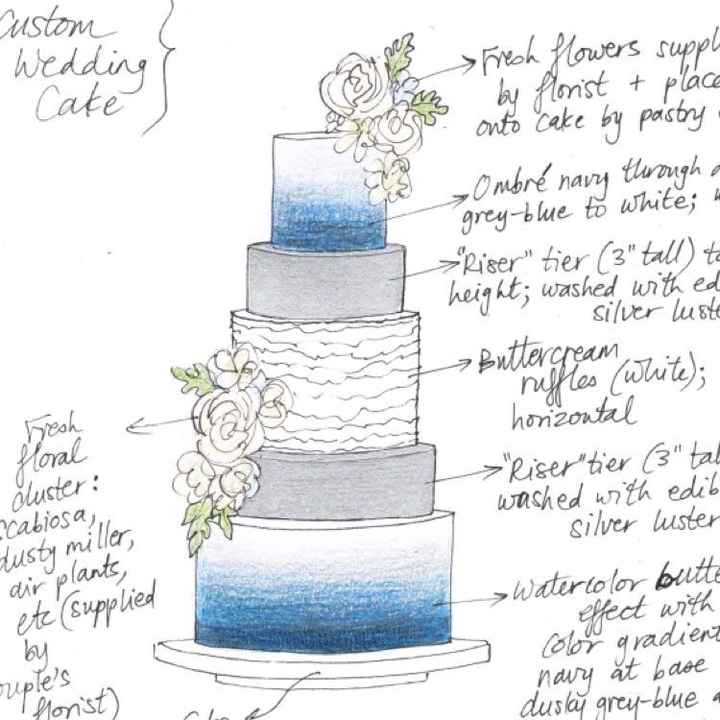 Custom
Wedding
Cake
Fresh flowers
by florist +
onto cake by pastry
Ombré navy through
grey-blue to white;
"Riser" tier (3" tall)
height; washed with
silver
Buttercream
ruffles (white);
horizontal
"Riser" tier (3"
washed with
silver luster
Watercolor
effect with
color
navy at base
dusky grey-blue
Fresh
floral
cluster:
dusty miller,
air plants,
etc (supplied
by
florist)